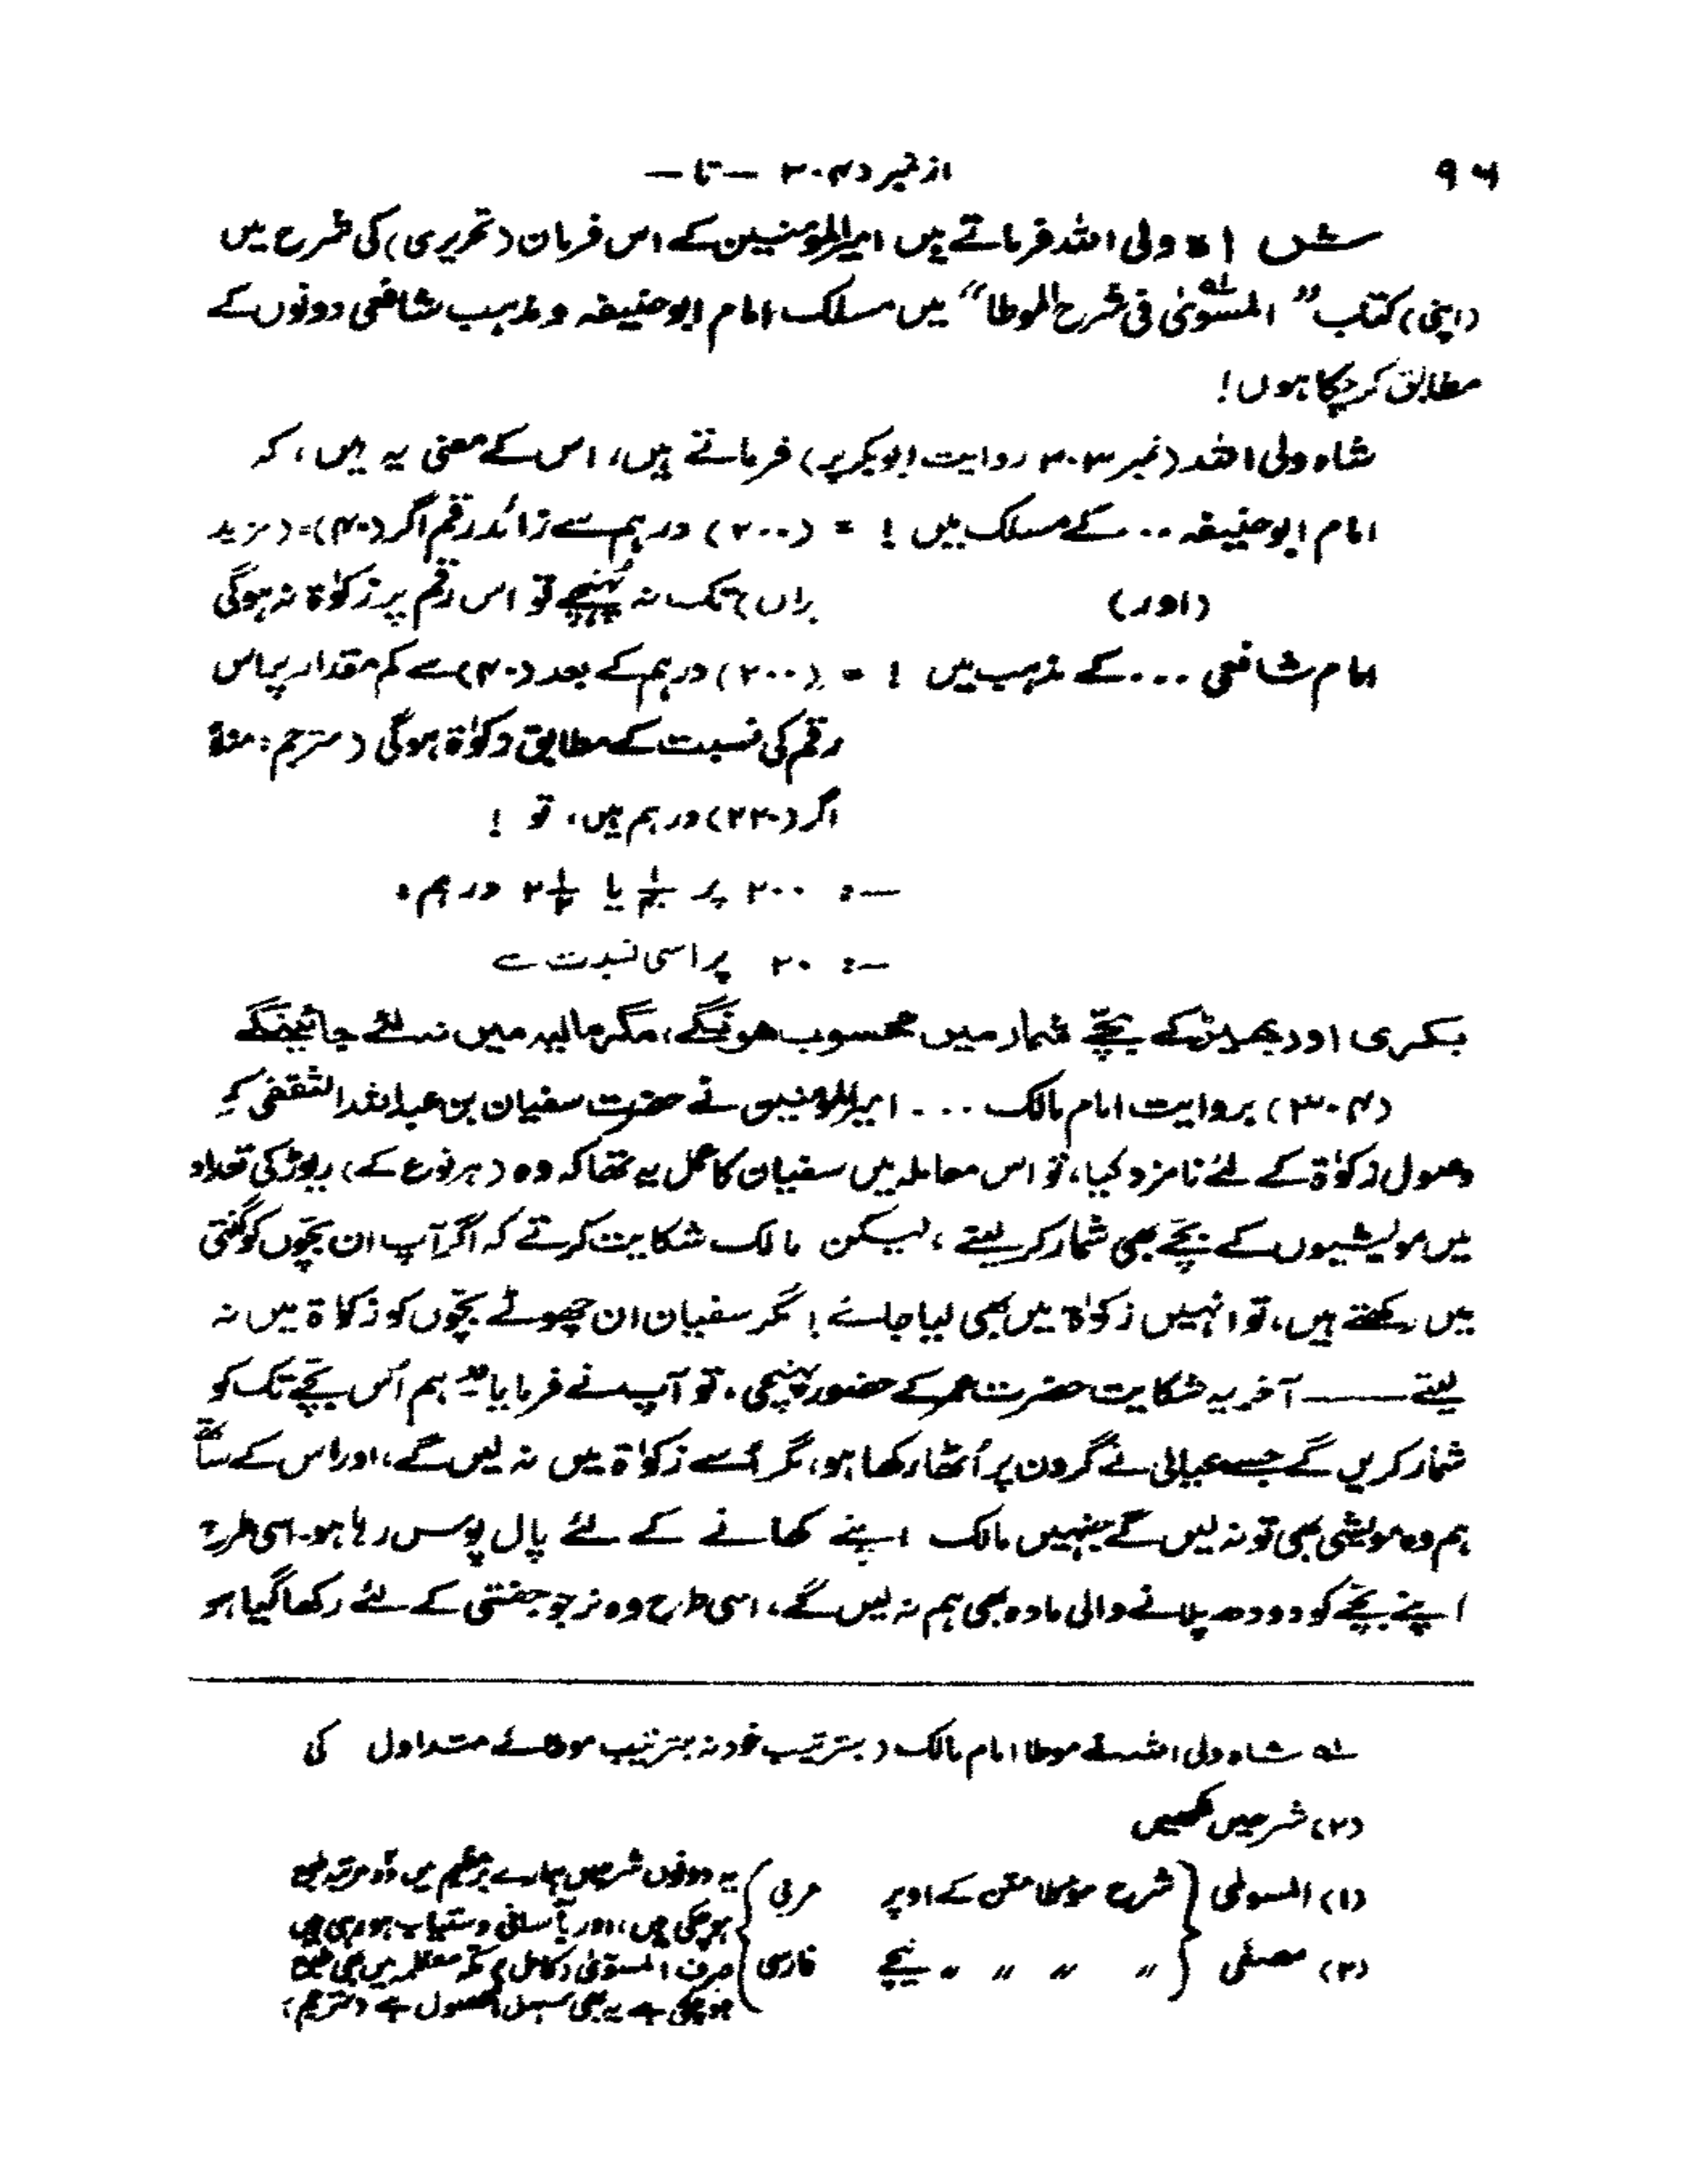 ۹۶ از نمبر (۳۰۴) — تا —
شاہ ولی اللہ فرماتے ہیں امیرالمؤمنین کے اس فرمان (تحریری) کی شرح میں
(اپنی) کتاب "المسوّیٰ فی شرح الموطا" میں مسلک امام ابوحنیفہ و مذہب شافعی دونوں کے
مطابق کر چکا ہوں!
شاہ ولی اللہ (نمبر ۳۰۳ روایت ابوبکر پر) فرماتے ہیں، اس کے معنی یہ ہیں، کہ
امام ابوحنیفہ .. کے مسلک میں ! = (۲۰۰) درہم سے زائد رقم اگر (۴۰) = (مزید
(اور) براں) تک نہ پہنچے تو اس رقم پر زکوٰۃ نہ ہوگی
امام شافعی ... کے مذہب میں ! = (۲۰۰) درہم کے بعد (۴۰) سے کم مقدار پر اس
رقم کی نسبت کے مطابق زکوٰۃ ہوگی (مترجم: مثلاً
اگر (۲۲۰) درہم ہیں، تو !
—: ۲۰۰ پر ۱/۴۰ یا ۲ ۱/۲ درہم،
—: ۲۰ پر اسی نسبت سے
بکری اور بھیڑ کے بچّے شمار میں محسوب ہونگے، مگر مالیہ میں نہ لئے جائینگے
(۳۰۴) بروایت امام مالک ... امیرالمؤمنین نے حضرت سفیان بن عبداللہ الثقفی کو
وصول زکوٰۃ کے لئے نامزد کیا، تو اس معاملہ میں سفیان کا عمل یہ تھا کہ وہ (ہر نوع کے) ریوڑ کی تعداد
میں مویشیوں کے بچّے بھی شمار کر لیتے، لیکن مالک شکایت کرتے کہ اگر آپ ان بچّوں کو گنتی
میں رکھتے ہیں، تو انہیں زکوٰۃ میں بھی لیا جائے! مگر سفیان ان چھوٹے بچّوں کو زکاۃ میں نہ
لیتے —— آخر یہ شکایت حضرت عمر کے حضور پہنچی، تو آپ نے فرمایا "ہم اُس بچّے تک کو
شمار کریں گے جسے عیالی نے گردن پر اُٹھا رکھا ہو، مگر اُسے زکوٰۃ میں نہ لیں گے، اور اس کے ساتھ
ہم وہ مویشی بھی تو نہ لیں گے جنہیں مالک اپنے کھانے کے لئے پال پوس رہا ہو۔ اسی طرح
اپنے بچّے کو دودھ پلانے والی مادہ بھی ہم نہ لیں گے، اسی طرح وہ نر جو جفتی کے لئے رکھا گیا ہو
لہ شاہ ولی اللہ نے موطا امام مالک (بترتیب خود نہ بترتیب موطائے متداول کی
(۲) شرحیں لکھیں
(۱) المسویٰ } شرح موطا متن کے اوپر عربی
(۲) مصفّٰی } " " " " نیچے فارسی
یہ دونوں شرحیں ہمارے برعظیم میں دو مرتبہ طبع
ہو چکی ہیں، اور بآسانی دستیاب ہو رہی ہیں
صرف المسوّیٰ (کامل) مکہ معظمہ میں بھی طبع
ہو چکی ہے یہ بھی سہل الحصول ہے (مترجم)